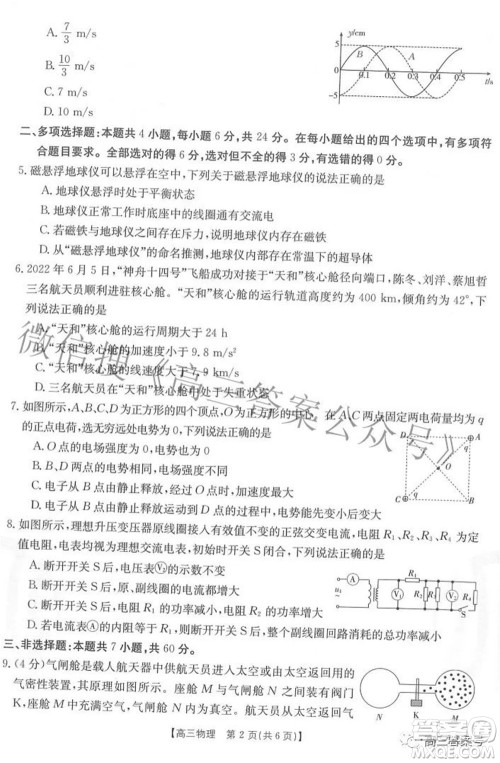 A. 7/3 m/s
B. 10/3 m/s
C. 7 m/s
D. 10 m/s
y/cm
5
B
A
0
0.1
0.2
0.3
0.4
0.5
t/s
-5
二、多项选择题:本题共 4 小题,每小题 6 分,共 24 分。在每小题给出的四个选项中,有多项符合题目要求。全部选对的得 6 分,选对但不全的得 3 分,有选错的得 0 分。
5. 磁悬浮地球仪可以悬浮在空中,下列关于磁悬浮地球仪的说法正确的是
A. 地球仪悬浮时处于平衡状态
B. 地球仪正常工作时底座中的线圈通有交流电
C. 若磁极与地球仪之间存在斥力,说明地球仪内存在磁铁
D. 从“磁悬浮地球仪”的命名推测,地球仪中存在常温下的超导体
6. 2022 年 6 月 5 日,“神舟十四号”飞船成功对接于“天和”核心舱径向端口,陈冬、刘洋、蔡旭哲
三名航天员顺利进驻核心舱。“天和”核心舱的运行轨道高度约为 400 km,倾角约为 42°,下
列说法正确的是
A.“天和”核心舱的运行周期大于 24 h
B.“天和”核心舱的加速度小于 9.8 m/s²
D. 三名航天员在“天和”核心舱内不受外力作用
7. 如图所示,A、B、C、D 为正方形的四个顶点,O 为正方形的中心,在 A、C 两点固定两电荷量均为 q
的正点电荷,选无穷远处电势为 0,下列说法正确的是
A. O 点的电场强度为 0,电势也为 0
B. O 点的电场强度为 0,电势不为 0
C. 电子从 B 点由静止释放,经过 O 点时的速度最大
D. 电子从 B 点由静止释放,在之后的运动过程中,电势能先变小后变大
A
q
B
O
q
C
D
8. 如图所示,理想升压变压器原线圈接入有效值不变的正弦交变电流,电阻 R₁、R₂、R₃、R₄ 为定
值电阻,电表均为理想交流电表,初始时开关 S 闭合,下列说法正确的是
A. 断开开关 S 后,电压表Ⓥ₁的示数不变
B. 断开开关 S 后,原、副线圈的电流都增大
C. 断开开关 S 后,电阻 R₁ 的功率增大
D. 若电流表Ⓐ的内阻等于 R₁,则断开开关 S 后整个副线圈回路消耗的总功率减小
A
u₁
R₁
V₁
R₂
V₂
R₃
R₄
S
三、非选择题:本题共 7 小题,共 60 分。
9. (4 分)气闸舱是载人航天器中供航天员进入太空或由太空返回用的
气密性装置,其原理如图所示。座舱 M 与气闸舱 N 之间装有阀
门 K,座舱 M 中充满空气,气闸舱 N 内为真空。航天员由太空返
N
K
M
【高三物理 第 2 页(共 6 页)】
微信搜《高三答案公众号》
高三答案号